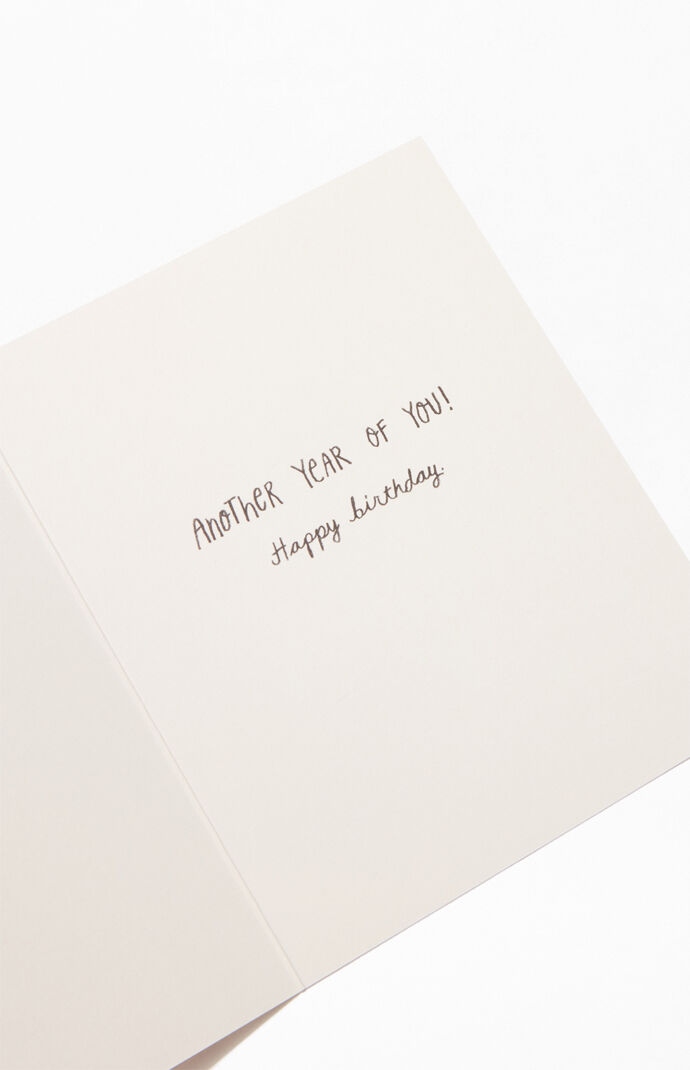 ANOTHER YEAR OF YOU!
Happy birthday.